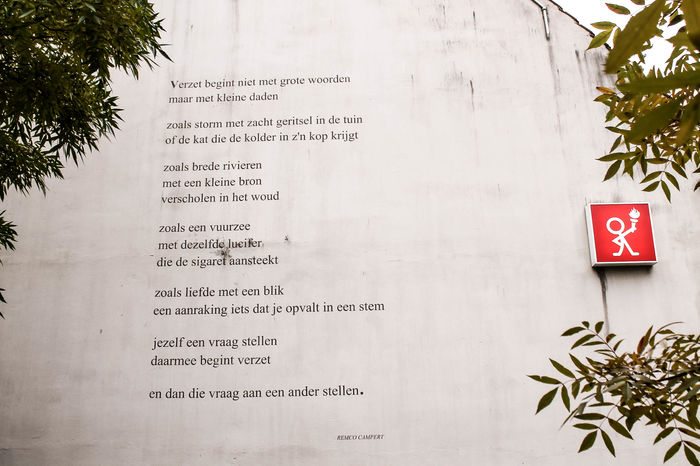 Verzet begint niet met grote woorden
maar met kleine daden
zoals storm met zacht geritsel in de tuin
of de kat die de kolder in z'n kop krijgt
zoals brede rivieren
met een kleine bron
verscholen in het woud
zoals een vuurzee
met dezelfde lucifer
die de sigaret aansteekt
zoals liefde met een blik
een aanraking iets dat je opvalt in een stem
jezelf een vraag stellen
daarmee begint verzet
en dan die vraag aan een ander stellen.
REMCO CAMPERT